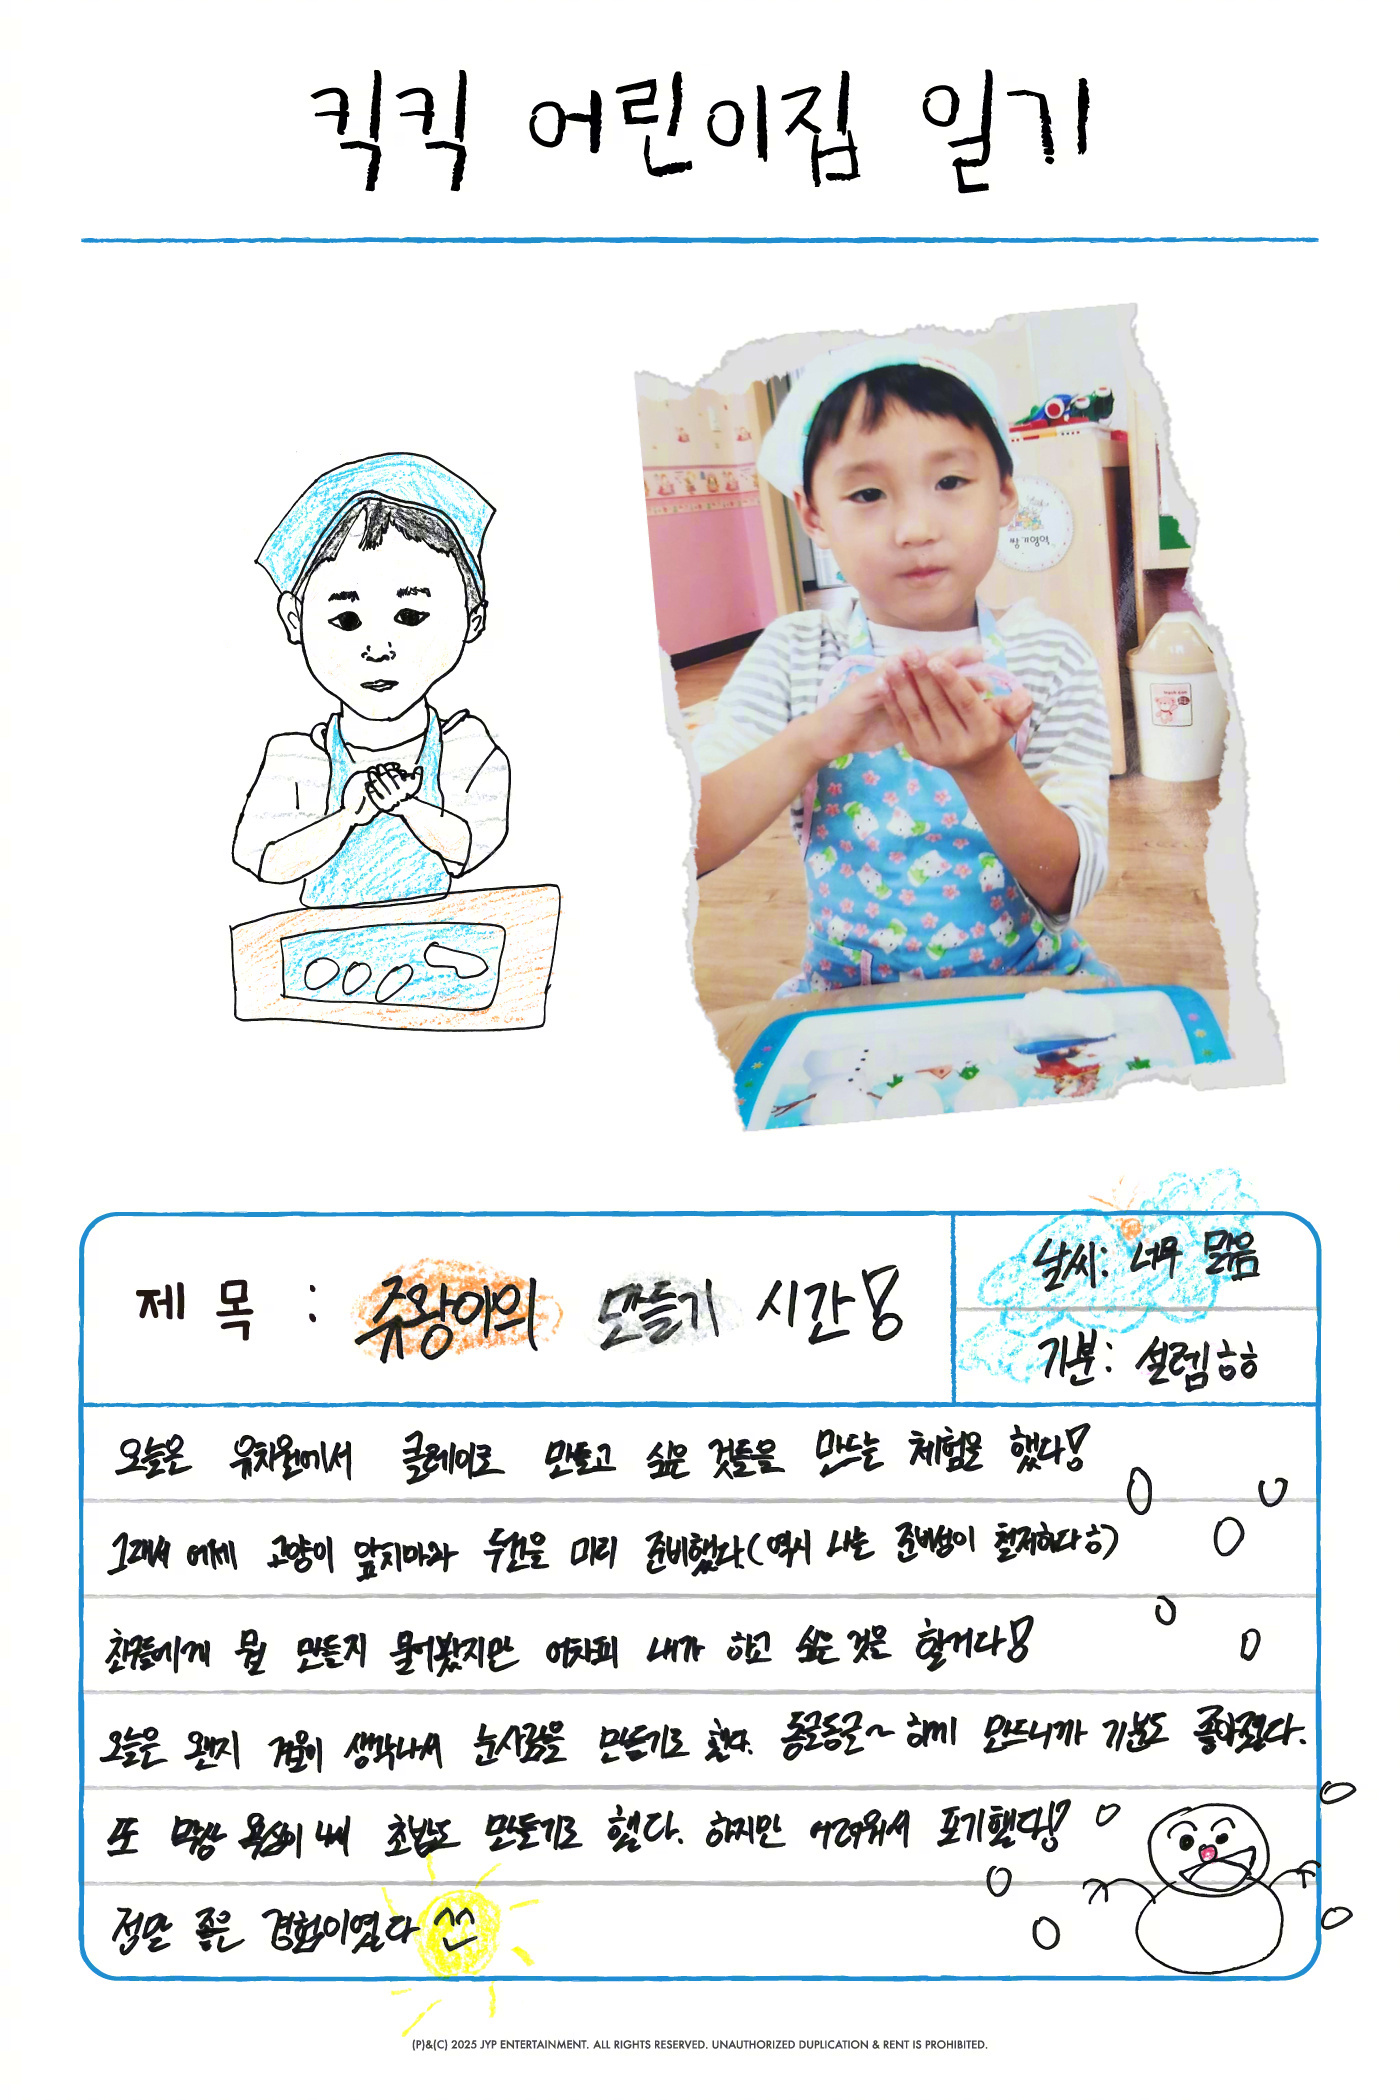 킥킥 어린이집 일기
제 목 : 쥬왕이의 만들기 시간!
날씨: 너무 맑음
기분: 설렘ㅎㅎ
오늘은 유치원에서 클레이로 만들고 싶은 것들을 만드는 체험을 했다!
그래서 어제 고양이 앞치마와 두건을 미리 준비했다.(역시 나는 준비성이 철저하다ㅎ)
친구들에게 뭘 만들지 물어봤지만 어차피 내가 하고 싶은 것을 할거다!
오늘은 왠지 겨울이 생각나서 눈사람을 만들기로 했다. 동글동글~ 하게 만드니까 기분도 좋아졌다.
또 막상 욕심이 나서 초밥도 만들기로 했다. 하지만 어려워서 포기했다!
정말 좋은 경험이였다
(P)&(C) 2025 JYP ENTERTAINMENT. ALL RIGHTS RESERVED. UNAUTHORIZED DUPLICATION & RENT IS PROHIBITED.